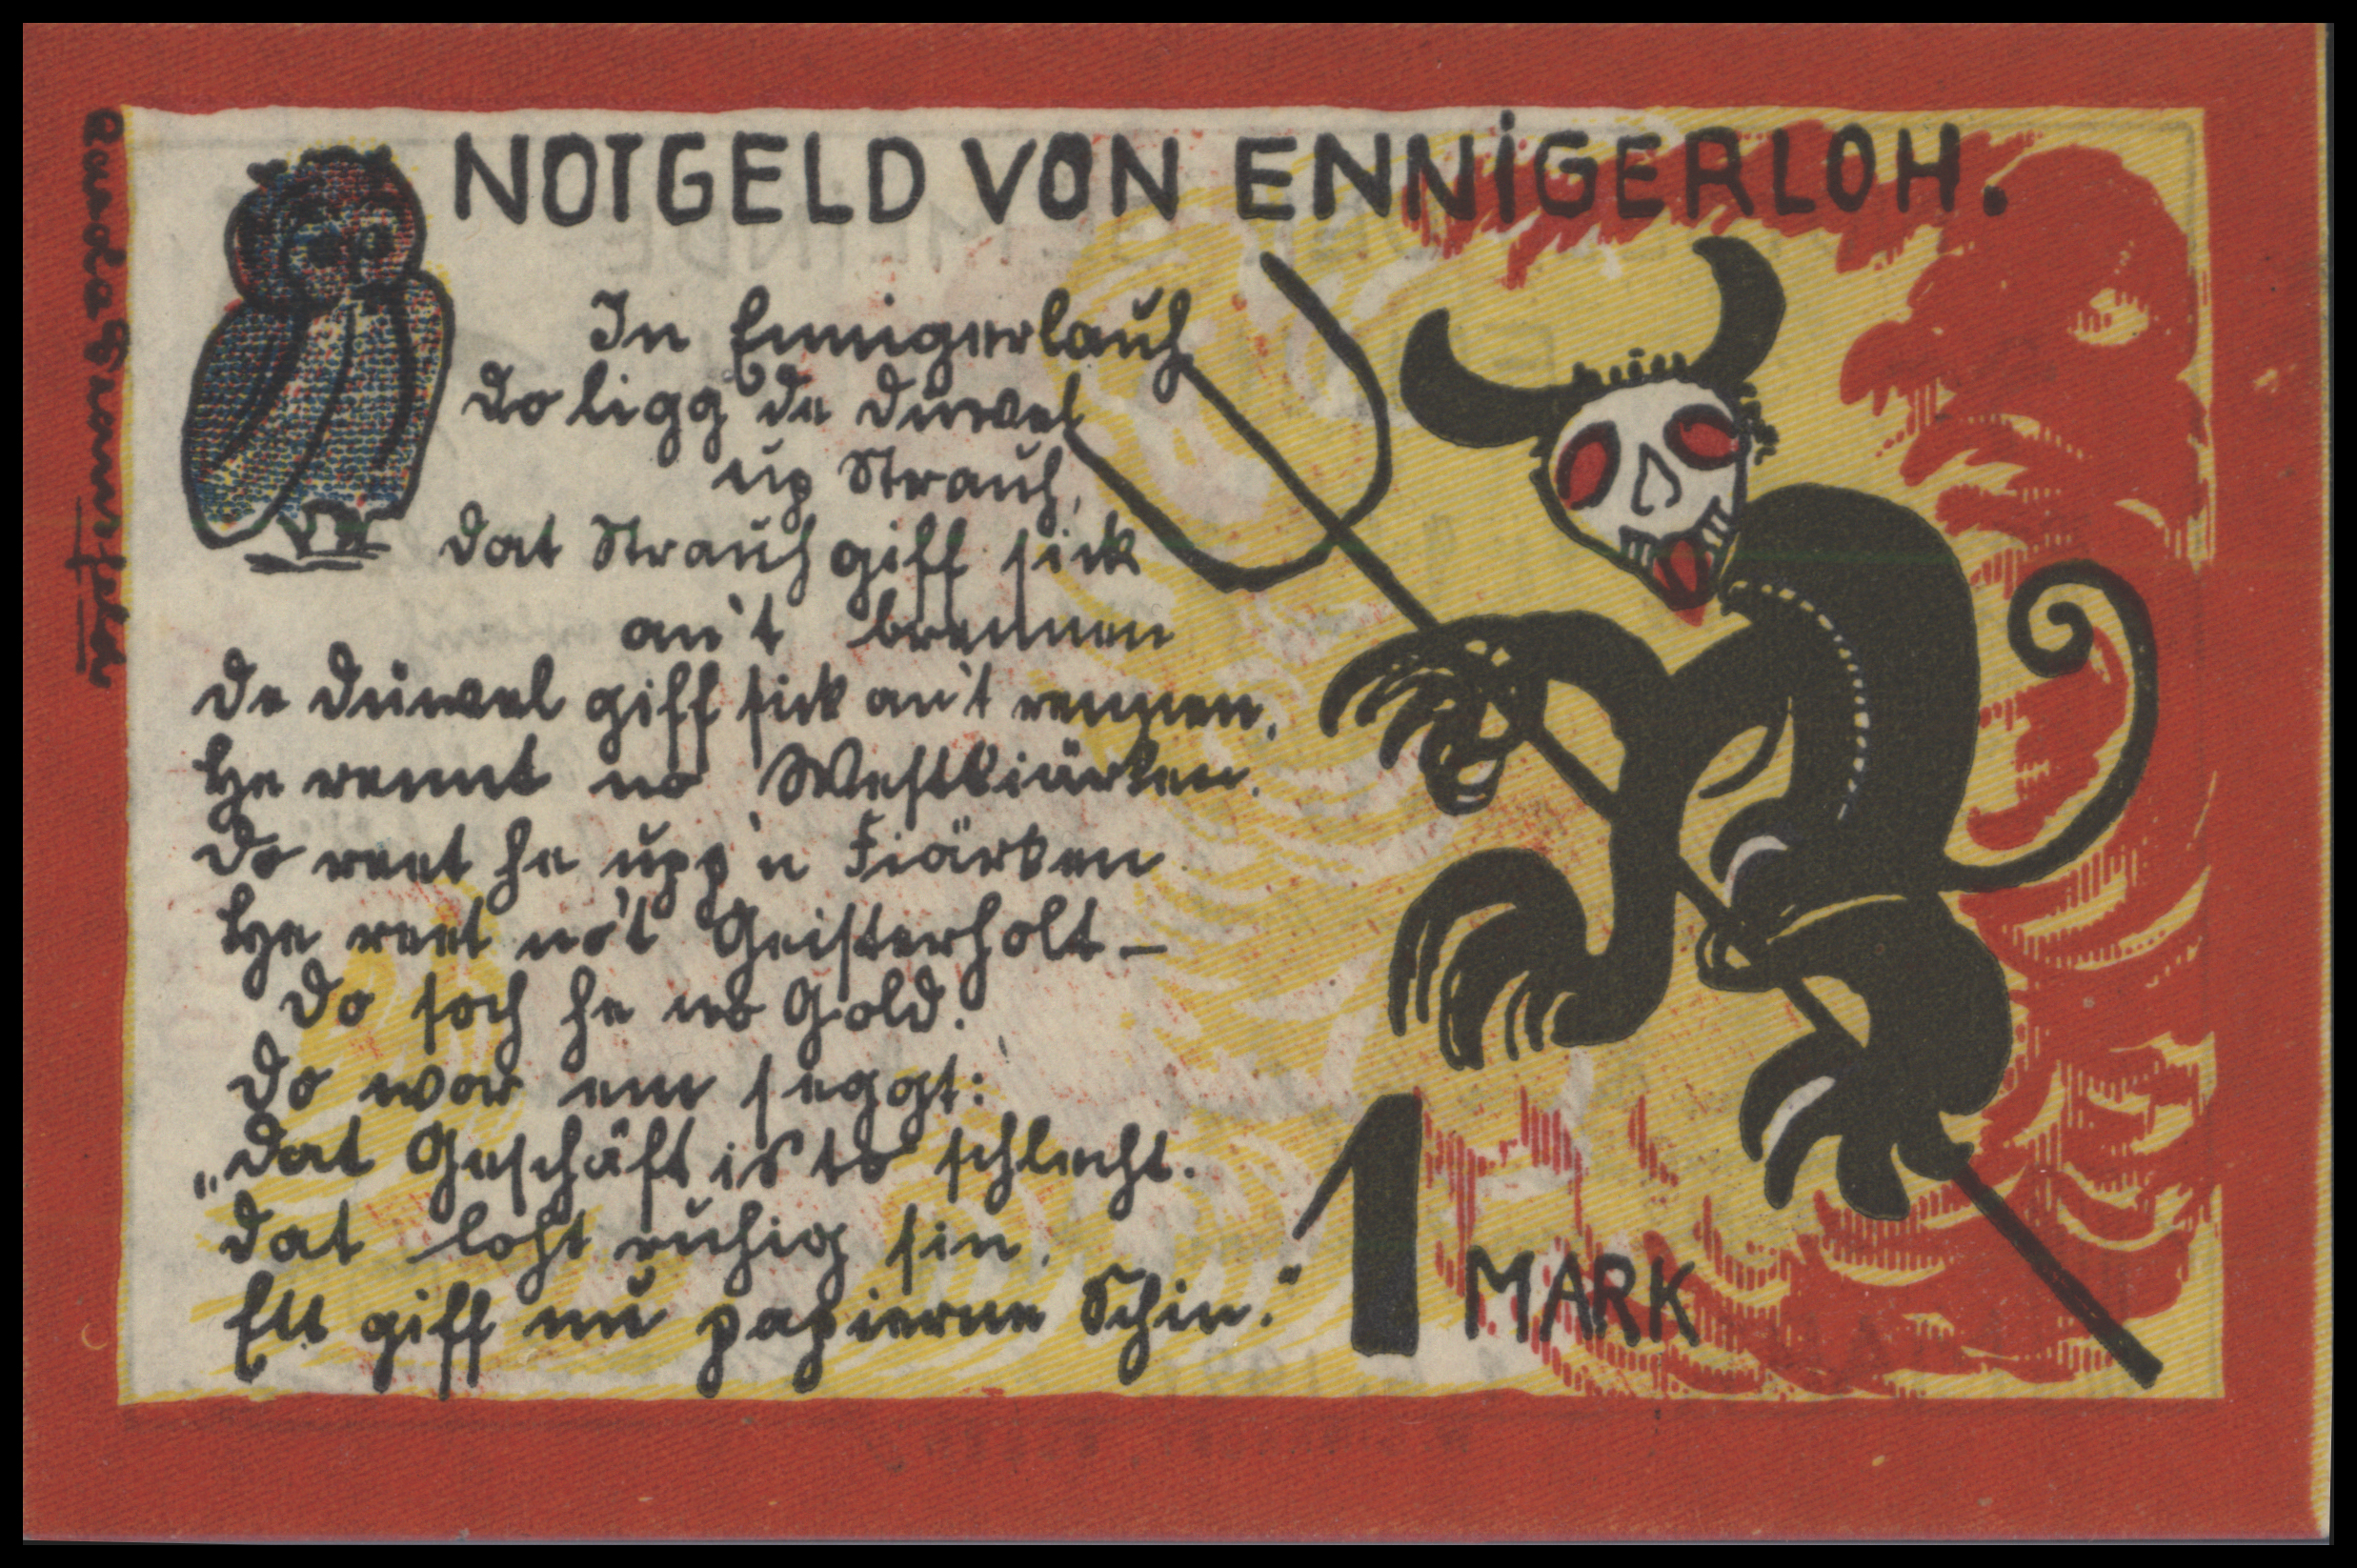 NOTGELD VON ENNIGERLOH.
In Ennigerlauh
do ligg de Düwel
up Strauh,
dat Strauh giff sick
an't brennen
de Düwel giff sick an't rennen,
He rennt no Westkiärken.
Do reet he upp'n Fiärken
He reet no't Geisterholt —
Do soch he no Gold.
Do wor em seggt:
„Dat Geschäft is to schlecht.
Dat loht ruhig sin,
Ett giff nu papierne Schin."
1 MARK